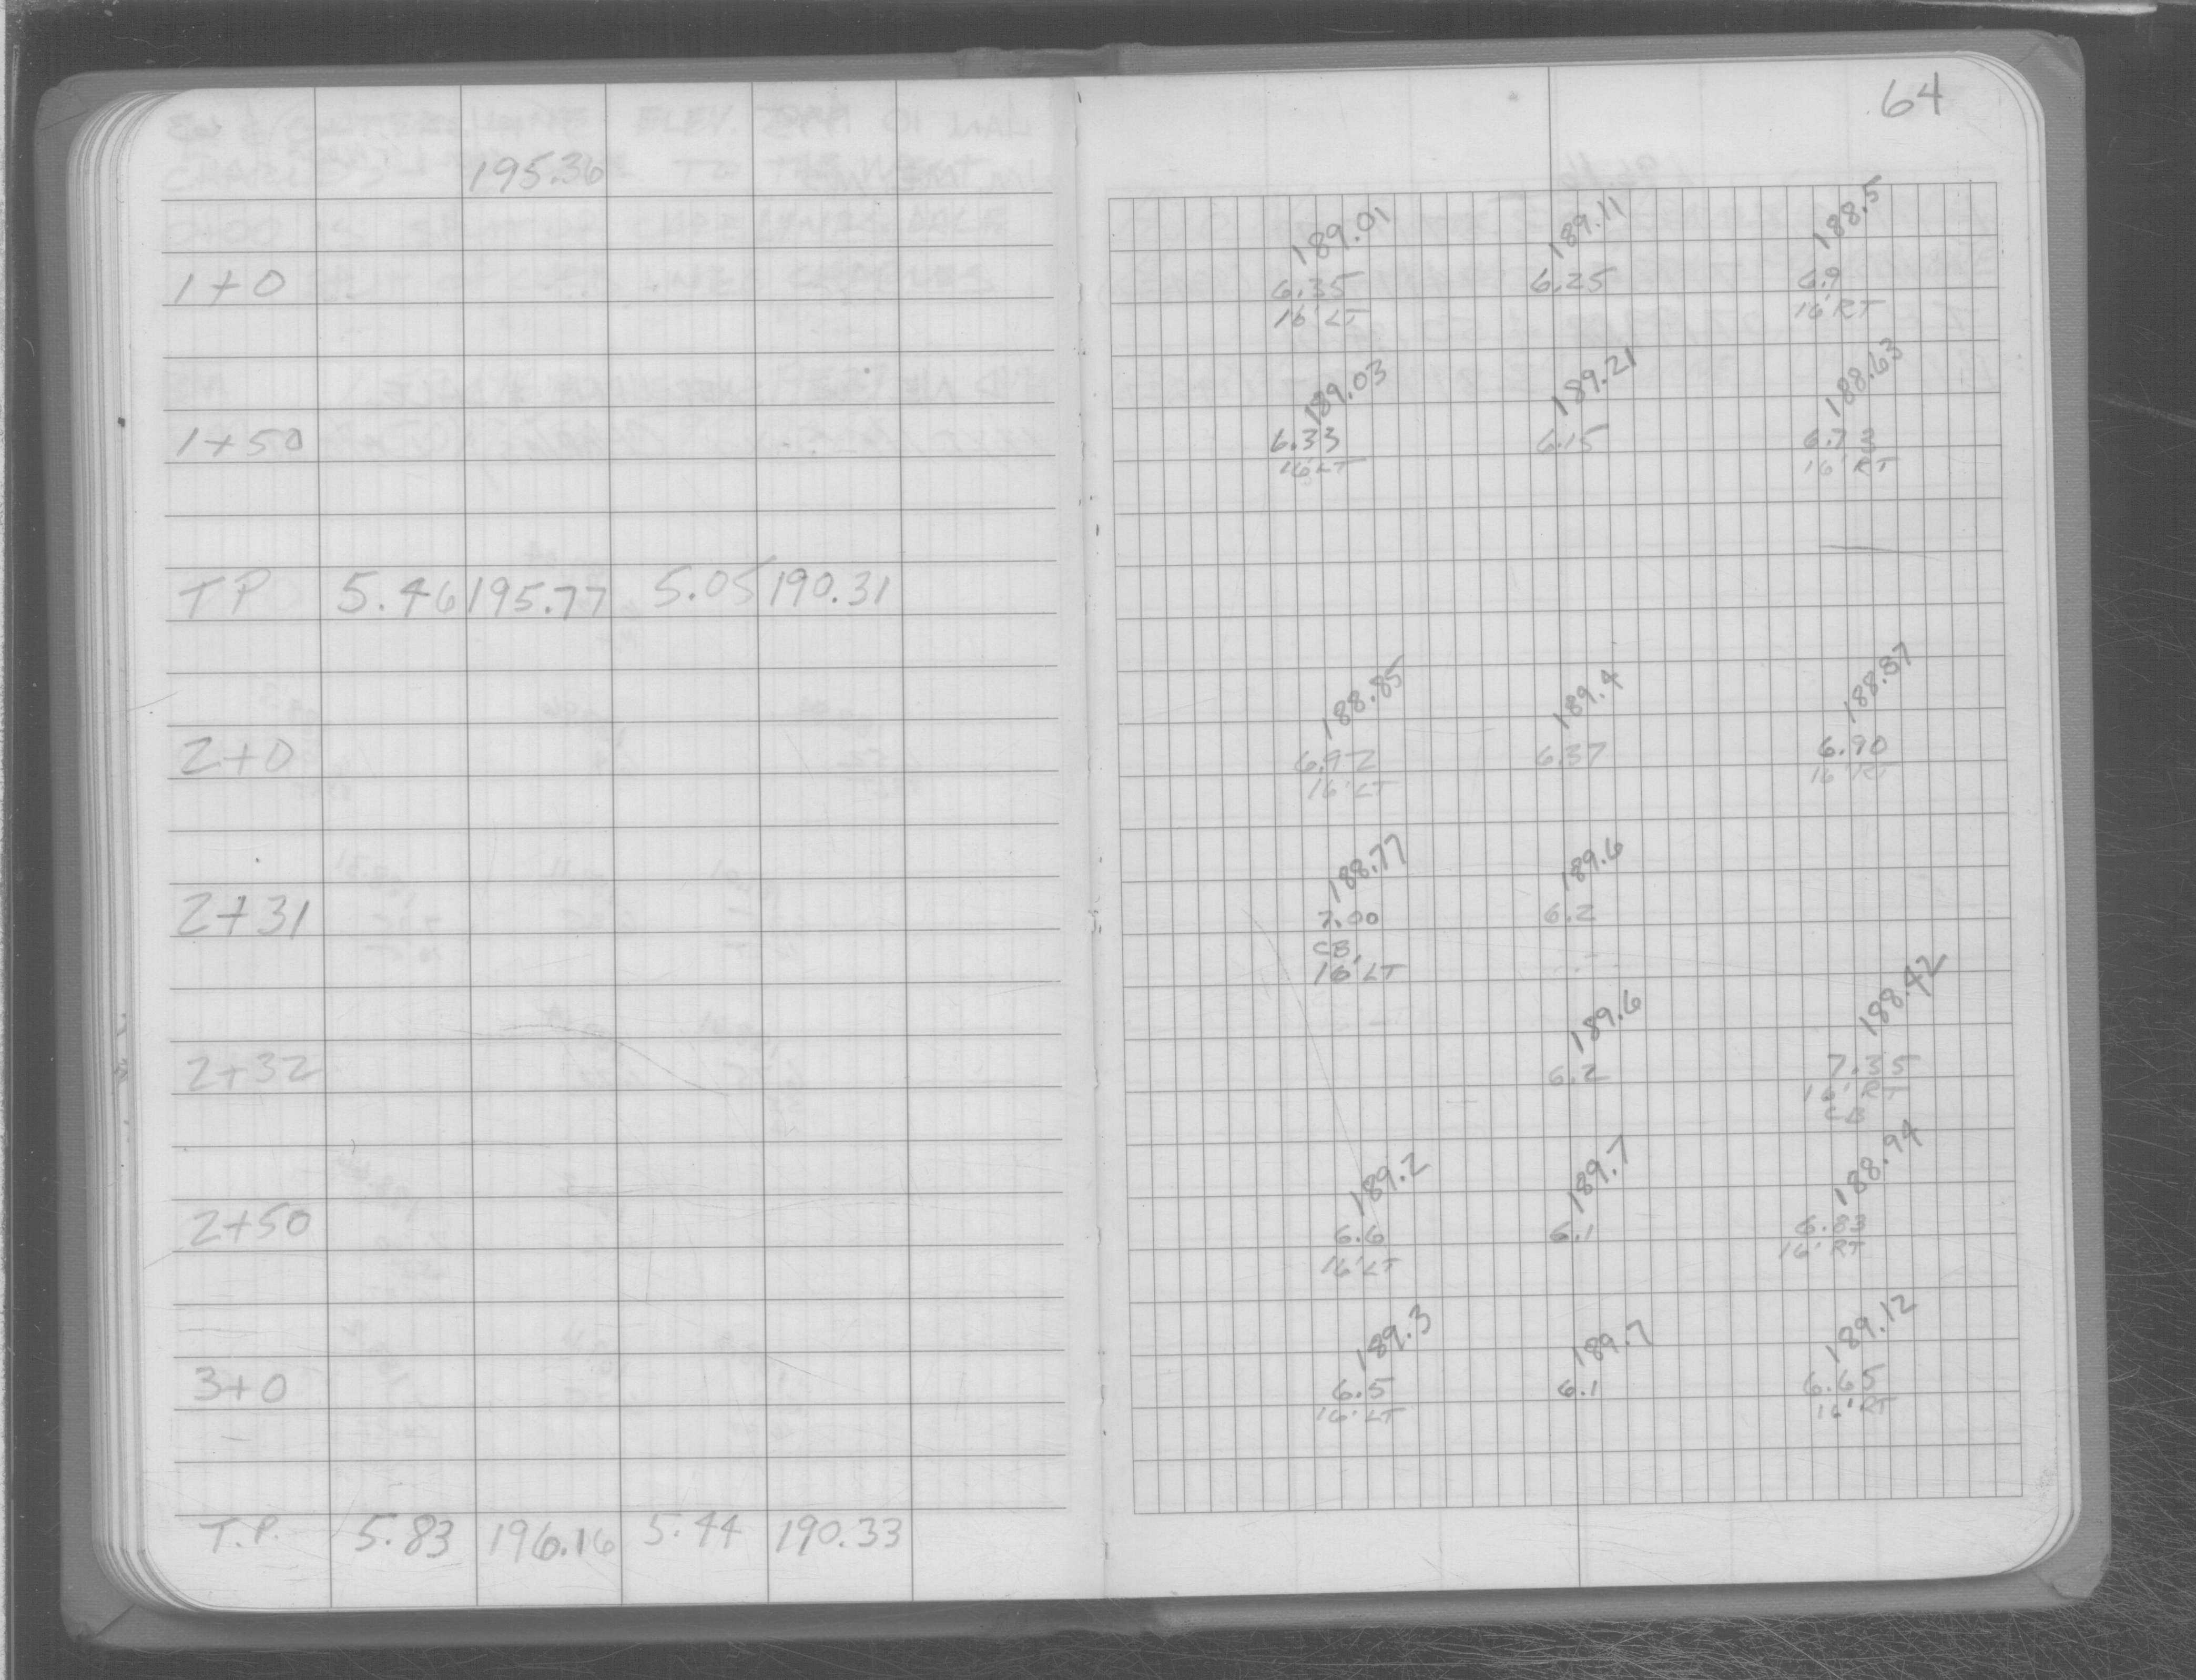 64
195.36
189.01 189.11 188.5
1+0 6.35 6.25 6.9
16' LT 16' RT
189.03 189.21 188.63
1+50 6.33 6.15 6.73
16' LT 16' RT
TP 5.46 195.77 5.05 190.31
188.85 189.4 188.87
2+0 6.92 6.37 6.90
16' LT 16' RT
188.77 189.6
2+31 7.00 6.2
CB,
16' LT
189.6 188.42
2+32 6.2 7.35
16' RT
CB
189.2 189.7 188.94
2+50 6.6 6.1 6.83
16' LT 16' RT
189.3 189.7 189.12
3+0 6.5 6.1 6.65
16' LT 16' RT
T.P. 5.83 196.16 5.44 190.33